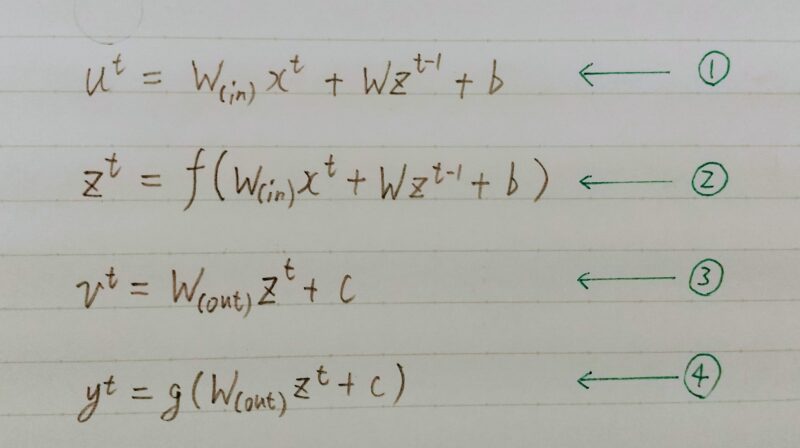 uᵗ = W₍ᵢₙ₎xᵗ + Wzᵗ⁻¹ + b ← ①
zᵗ = f(W₍ᵢₙ₎xᵗ + Wzᵗ⁻¹ + b) ← ②
vᵗ = W₍ₒᵤₜ₎zᵗ + c ← ③
yᵗ = g(W₍ₒᵤₜ₎zᵗ + c) ← ④